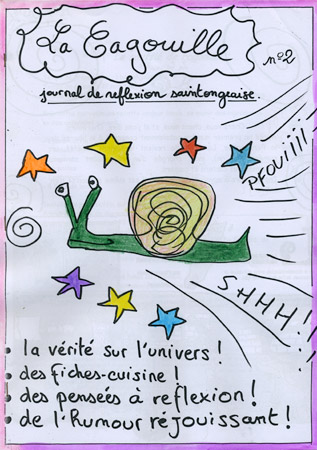 La Cagouille
n°2
journal de reflexion saintongeaise.
PFOUIIII
SHHH!
• la vérité sur l'univers !
• des fiches-cuisine !
• des pensées à reflexion !
• de l'Humour réjouissant !